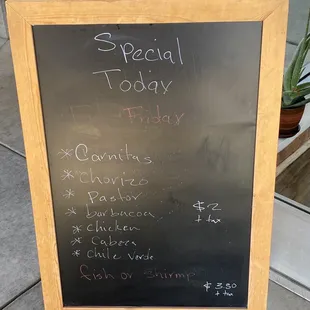 Special
Today
Friday
* Carnitas
* Chorizo
* Pastor
* barbacoa
* Chicken
* Cabeza
* Chile verde
$2
+ tax
fish or shrimp
$3.50
+ tax